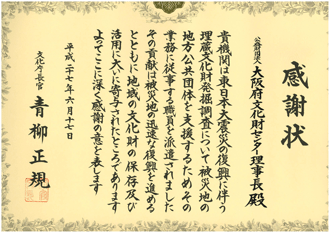 感謝状
公益財団法人 大阪府文化財センター理事長殿
貴機関は東日本大震災の復興に伴う
埋蔵文化財発掘調査について被災地の
地方公共団体を支援するためその
業務に従事する職員を派遣されました
その貢献は被災地の迅速な復興を進める
とともに地域の文化財の保存及び
活用に大いに寄与されたところであります
よってここに深く感謝の意を表します
平成二十七年六月十七日
文化庁長官 青柳正規